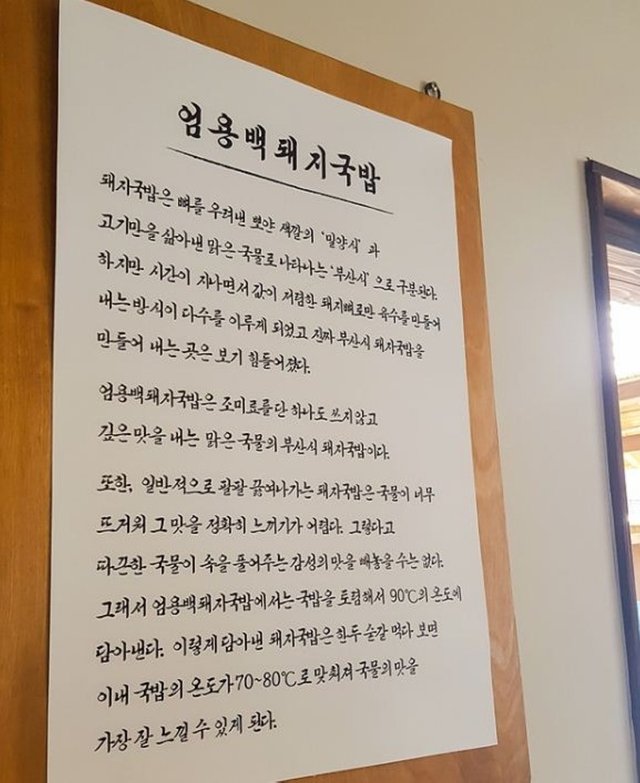 엄용백돼지국밥
돼지국밥은 뼈를 우려낸 뽀얀 색깔의 '밀양식' 과
고기만을 삶아낸 맑은 국물로 나타나는 '부산식' 으로 구분된다.
하지만 시간이 지나면서 값이 저렴한 돼지뼈로만 육수를 만들어
내는 방식이 다수를 이루게 되었고 진짜 부산식 돼지국밥을
만들어 내는 곳은 보기 힘들어졌다.
엄용백돼지국밥은 조미료를 단 하나도 쓰지않고
깊은 맛을 내는 맑은 국물의 부산식 돼지국밥이다.
또한, 일반적으로 팔팔 끓여나가는 돼지국밥은 국물이 너무
뜨거워 그 맛을 정확히 느끼기가 어렵다. 그렇다고
따끈한 국물이 속을 풀어주는 감성의 맛을 빼놓을 수는 없다.
그래서 엄용백돼지국밥에서는 국밥을 토렴해서 90℃의 온도에
담아낸다. 이렇게 담아낸 돼지국밥은 한두 술갈 먹다 보면
이내 국밥의 온도가 70~80℃로 맞춰져 국물의 맛을
가장 잘 느낄 수 있게 된다.